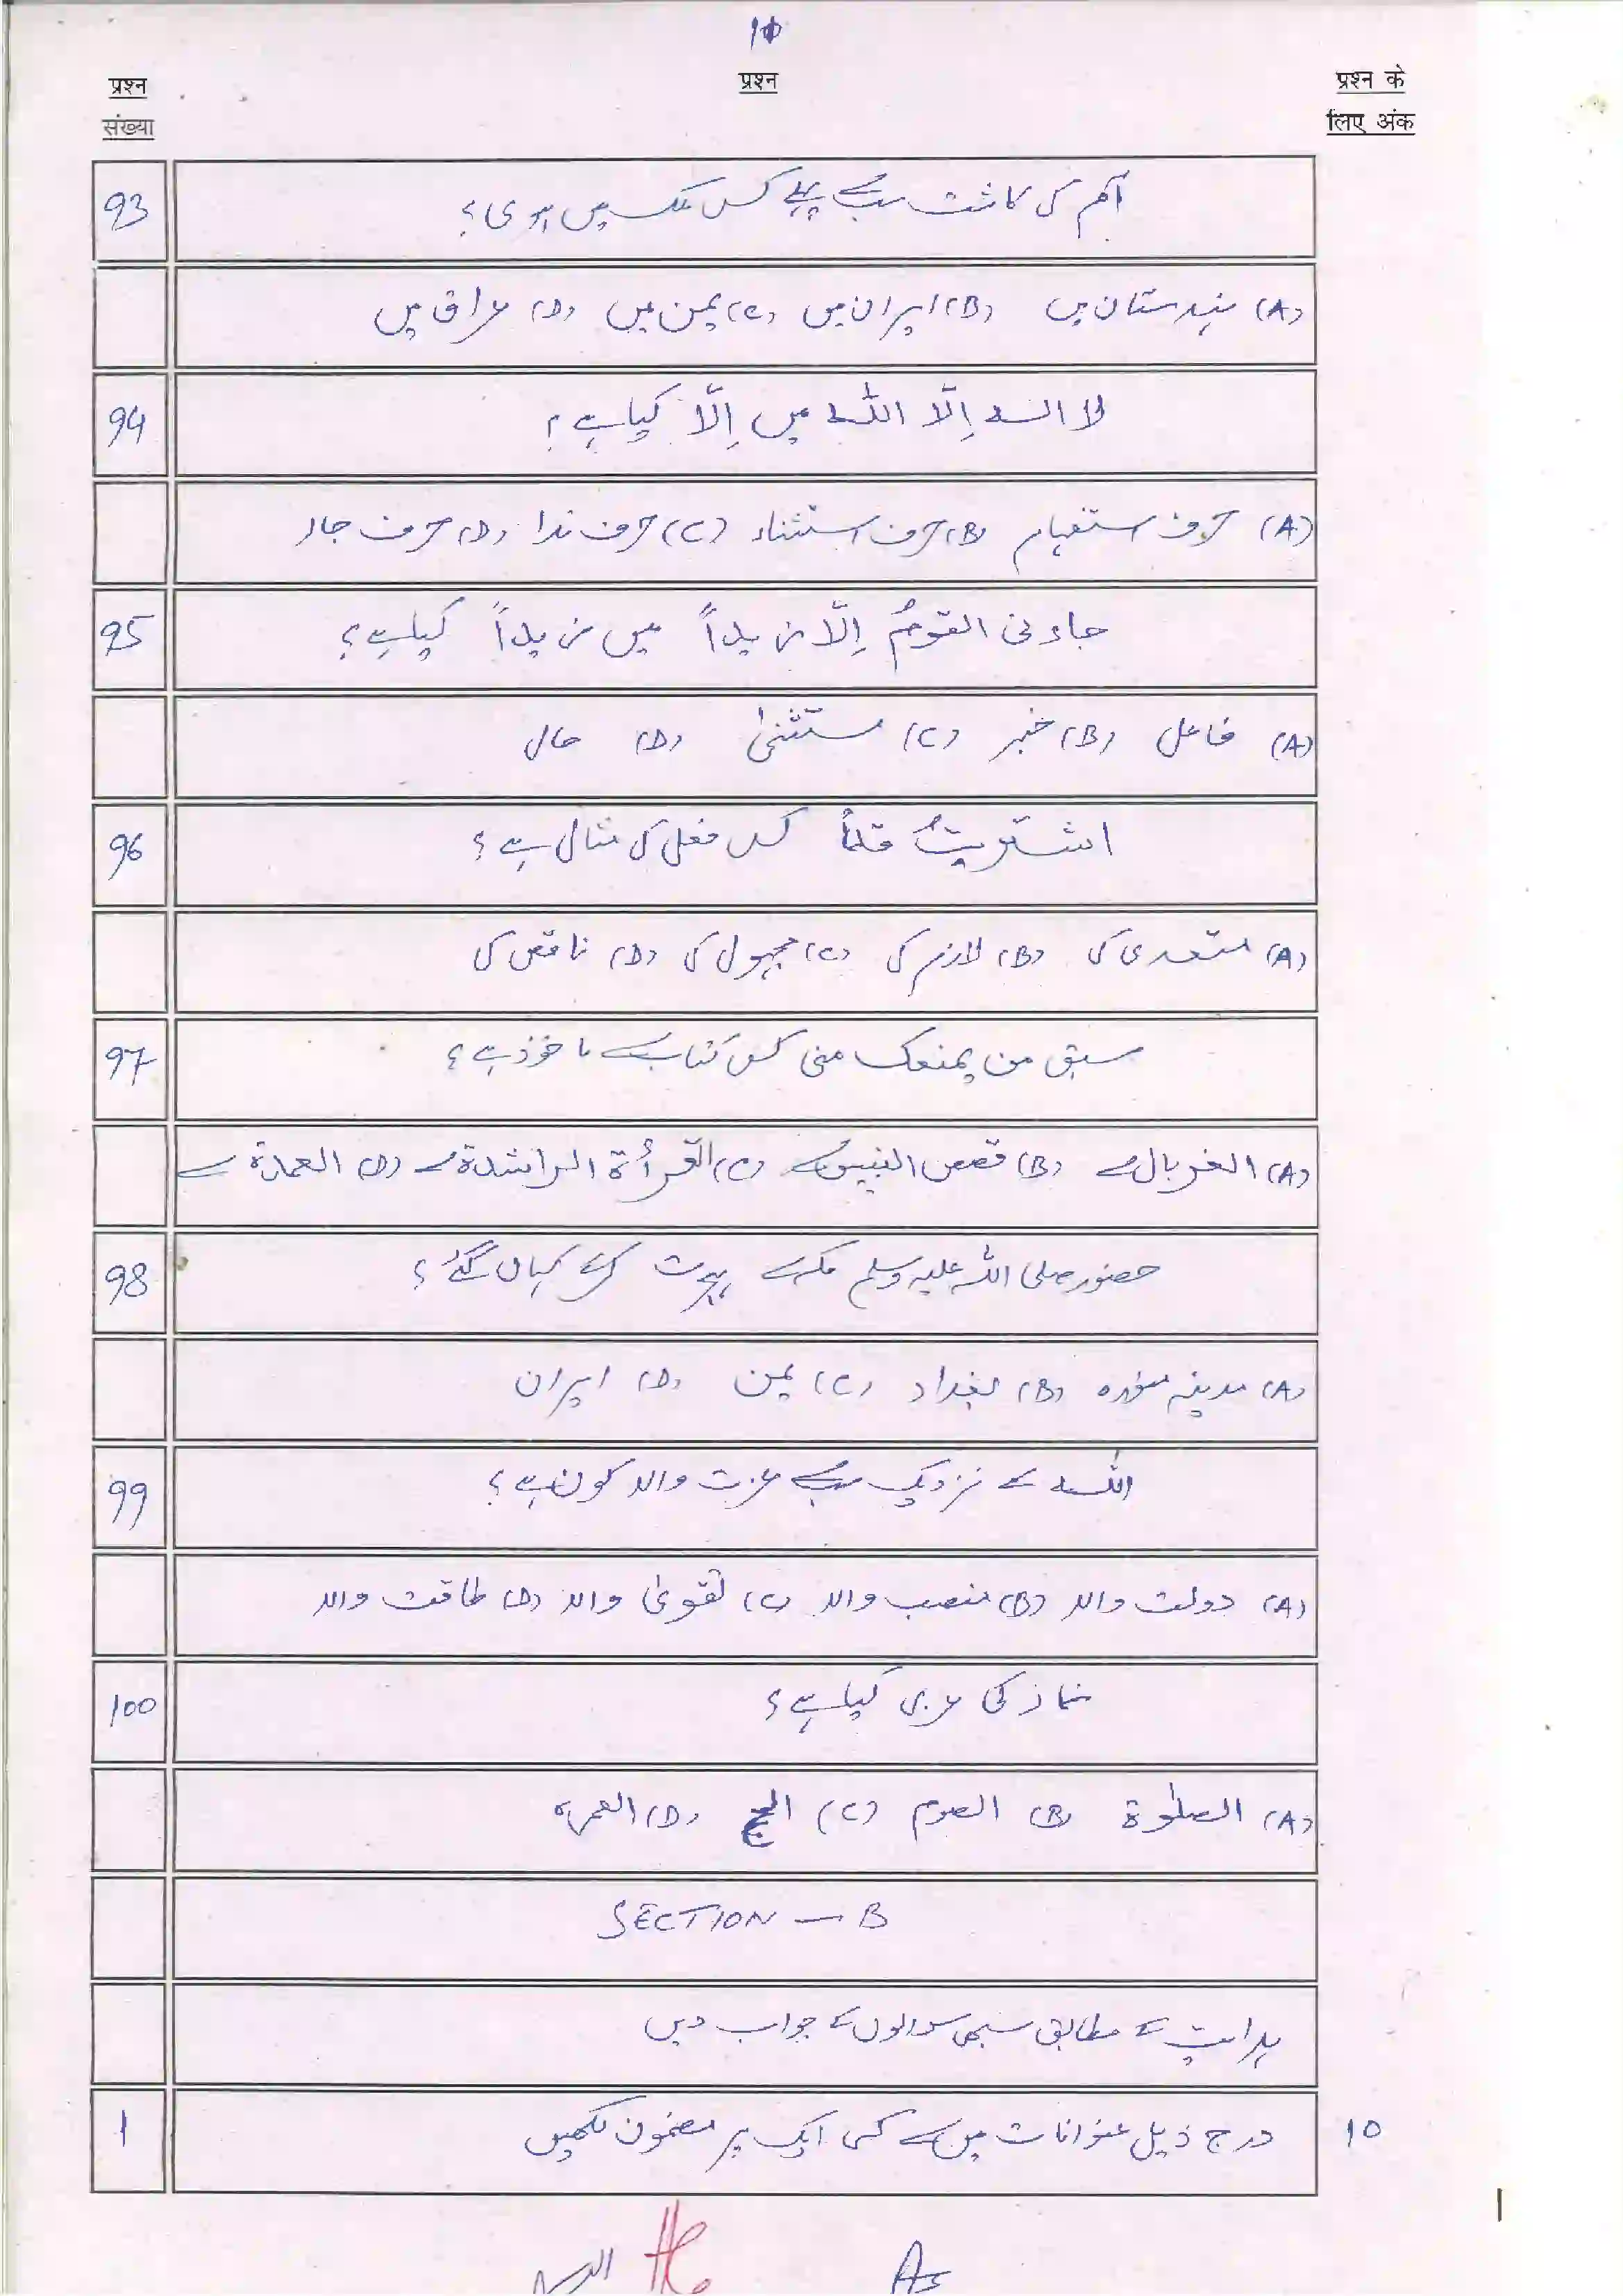 प्रश्न संख्या
प्रश्न
प्रश्न के लिए अंक
93
آم کی کاشت سب سے پہلے کس ملک میں ہوی؟
(A) ہندستان میں (B) ایران میں (C) یمن میں (D) عراق میں
94
لا الہ اِلّا اللہ میں اِلّا کیا ہے؟
(A) حرف استفہام (B) حرف استثناء (C) حرف ندا (D) حرف جار
95
جاءنی القومُ اِلّا زیداً میں زیداً کیا ہے؟
(A) فاعل (B) خبر (C) مستثنیٰ (D) حال
96
اشتریتُ قلماً کس فعل کی مثال ہے؟
(A) متعدی کی (B) لازم کی (C) مجہول کی (D) ناقص کی
97
سبق من یمنعک منی کس کتاب سے ماخوذ ہے؟
(A) الغربال سے (B) قصص النبیین سے (C) القرأة الراشدة سے (D) العمدة سے
98
حضور صلی اللہ علیہ وسلم مکہ سے ہجرت کرکے کہاں گئے؟
(A) مدینہ منورہ (B) بغداد (C) یمن (D) ایران
99
اللہ کے نزدیک سب سے عزت والا کون ہے؟
(A) دولت والا (B) منصب والا (C) تقویٰ والا (D) طاقت والا
100
نماز کی عربی کیا ہے؟
(A) الصلوٰة (B) الصوم (C) الحج (D) العمرہ
SECTION — B
ہدایت کے مطابق سبھی سوالوں کے جواب دیں
1
درج ذیل عنوانات میں سے کسی ایک پر مضمون لکھیں
10